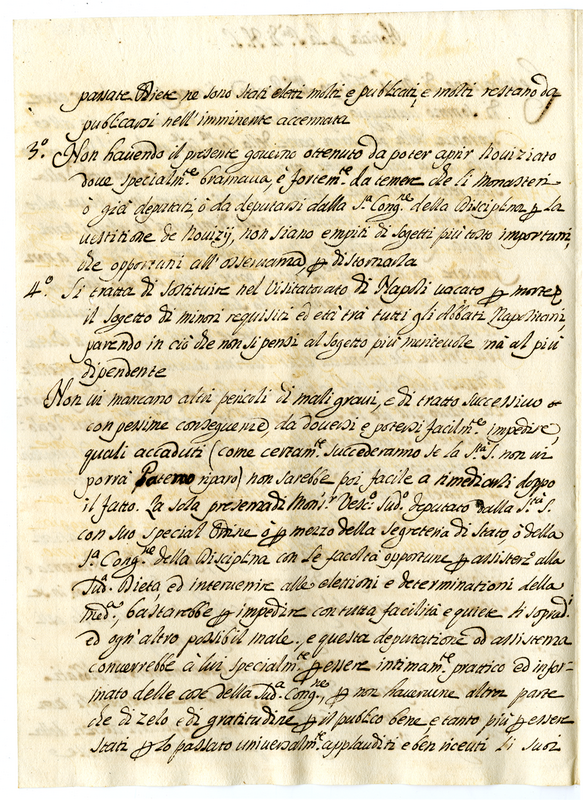 passate Diete ne sono stati eletti molti e publicati, e molti restano da
publicarsi nell'imminente accennata
3.º Non havendo il presente governo ottenuto da poter aprir Noviziato
dove specialm.te bramava, è fortem.te da temere che li Monasteri
ò già deputati, ò da deputarsi dalla S.ª Cong.ne della Disciplina p la
vestitione de Novizij, non siano empiti di sogetti più tosto importuni,
che opportuni all'osservanza, p distornarla
4.º Si tratta di sostituire nel Visitatorato di Napoli vacato p morte
il sogetto di minori requisiti ed età trà tutti gli Abbati Napolitani,
parendo in ciò che non si pensi al sogetto più meritevole mà al più
dipendente
Non vi mancano altri pericoli di mali gravi, e di tratto successivo
con pessime conseguenze, da doversi e potersi facilm.te impedire,
quali accaduti (come certam.te succederanno se la S.tà S. non vi
porrà Paterno riparo) non sarebbe poi facile a rimediarli doppo
il fatto. La sola presenza di Mons.r Vesc.º Sud.º deputato dalla S.tà S.
con suo special Ordine ò p mezzo della Segreteria di Stato, ò della
S.ª Cong.ne della Disciplina con le facoltà opportune p assistere alla
Sud.ª Dieta, ed intervenire alle elettioni e determinationi della
med.ª, bastarebbe p impedire con tutta facilità e quiete li sopradⁱ
ed ogn'altro possibil male. e questa deputatione ed assistenza
converrebbe à lui specialm.te p essere intimam.te prattico ed infor=
mato delle cose della Sud.ª Cong.ne, p non havervene altra parte
che di zelo e di gratitudine p il publico bene e tanto più p essere
stati p lo passato universalm.te applauditi e ben ricevuti li suoi